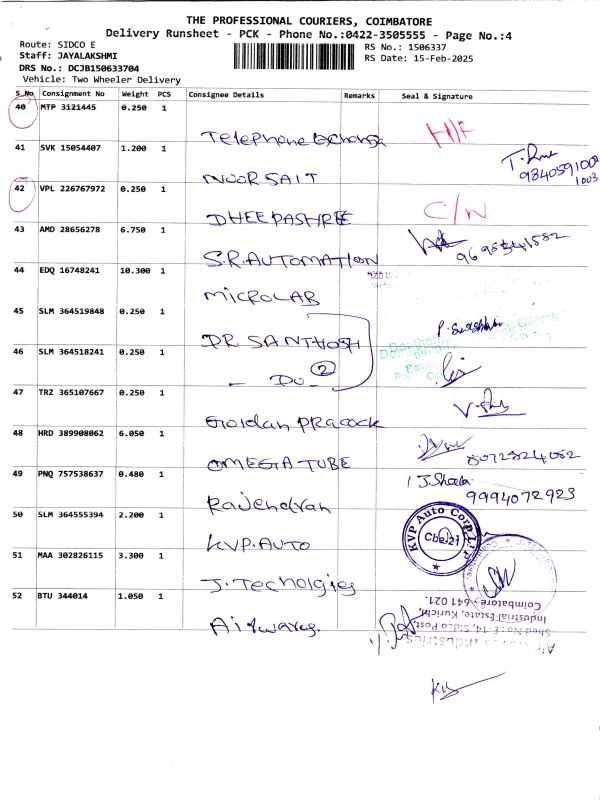 THE PROFESSIONAL COURIERS, COIMBATORE
Delivery Runsheet - PCK - Phone No.:0422-3505555 - Page No.:4
Route: SIDCO E
RS No.: 1506337
Staff: JAYALAKSHMI
RS Date: 15-Feb-2025
DRS No.: DCJB150633704
Vehicle: Two Wheeler Delivery
S.No Consignment No Weight PCS Consignee Details Remarks Seal & Signature
40 MTP 3121445 0.250 1 Telephone Exchange H/F
41 SVK 15054407 1.200 1 NOOR SAIT
9840591001
1003
42 VPL 226767972 0.250 1 DHEEPASHREE C/W
43 AMD 28656278 6.750 1 S.R.AUTOMATION
44 EDQ 16748241 10.300 1 MICROLAB
45 SLM 364519848 0.250 1 DR SANTHOSH
46 SLM 364518241 0.250 1 - Do - 2
47 TRZ 365107667 0.250 1 Goldan Pracock
48 HRD 389908062 6.050 1 OMEGA TUBE 8072324062
49 PNQ 757538637 0.480 1 Rajendran J.Sheela
9994072923
50 SLM 364555394 2.200 1 KVP.AUTO
KVP Auto Corp LLP
Cbe-21
51 MAA 302826115 3.300 1 J.Techolgies
52 BTU 344014 1.050 1 Airwares.
Industries
Shed No: E-14, Sidco Post,
Industrial Estate, Kurichi,
Coimbatore - 641 021.